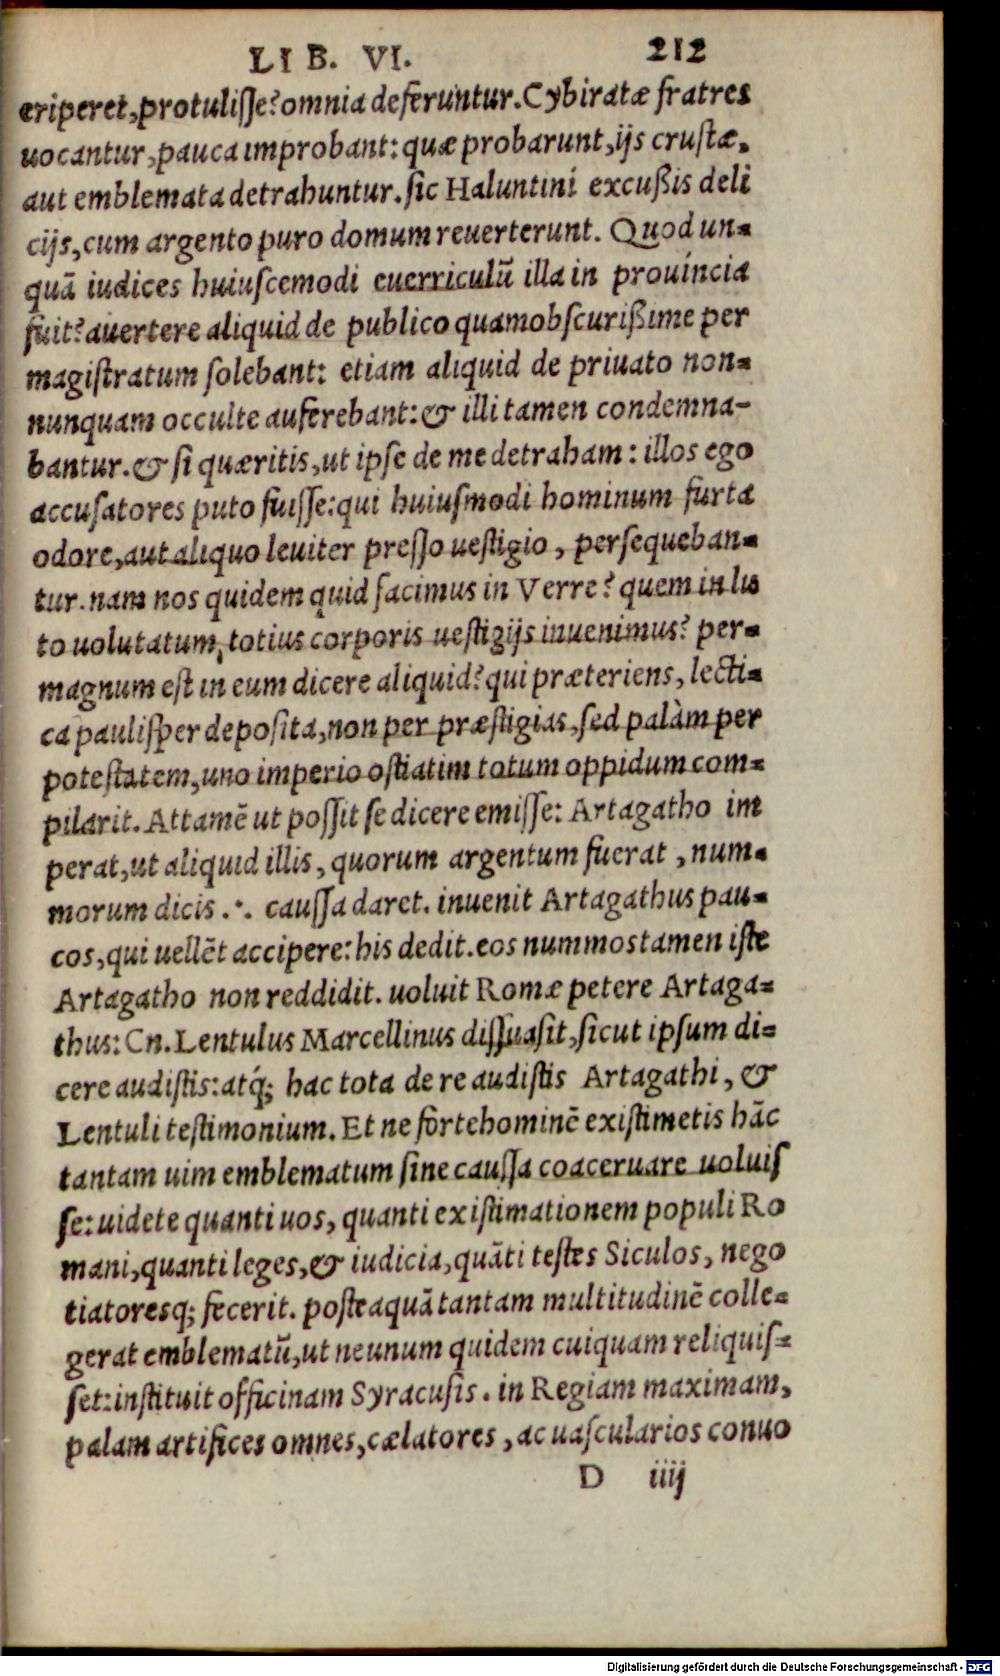 LIB. VI. 212
eriperet, protulisse? omnia deferuntur. Cybiratæ fratres
uocantur, pauca improbant: quæ probarunt, ijs crustæ,
aut emblemata detrahuntur. sic Haluntini excußis deli
cijs, cum argento puro domum reuerterunt. Quod un-
quā iudices huiuscemodi euerriculū illa in prouincia
fuit? auertere aliquid de publico quamobscurißime per
magistratum solebant: etiam aliquid de priuato non-
nunquam occulte auferebant: & illi tamen condemna-
bantur. & si quæritis, ut ipse de me detraham: illos ego
accusatores puto fuisse: qui huiusmodi hominum furta
odore, aut aliquo leuiter presso uestigio, persequeban-
tur. nam nos quidem quid facimus in Verre? quem in lu
to uolutatum, totius corporis uestigijs inuenimus? per-
magnum est in eum dicere aliquid? qui præteriens, lecti-
ca paulisper deposita, non per præstigias, sed palàm per
potestatem, uno imperio ostiatim totum oppidum com-
pilarit. Attamē ut possit se dicere emisse: Artagatho im
perat, ut aliquid illis, quorum argentum fuerat, num-
morum dicis .·. caussa daret. inuenit Artagathus pau-
cos, qui uellēt accipere: his dedit. eos nummos tamen iste
Artagatho non reddidit. uoluit Romæ petere Artaga-
thus: Cn. Lentulus Marcellinus dissuasit, sicut ipsum di-
cere audistis: atq́; hac tota de re audistis Artagathi, &
Lentuli testimonium. Et ne forte hominē existimetis hāc
tantam uim emblematum sine caussa coaceruare uoluis
se: uidete quanti uos, quanti existimationem populi Ro
mani, quanti leges, & iudicia, quāti testes Siculos, nego
tiatoresq; fecerit. posteaquā tantam multitudinē colle-
gerat emblematū, ut ne unum quidem cuiquam reliquis-
set: instituit officinam Syracusis. in Regiam maximam,
palam artifices omnes, cælatores, ac uascularios conuo
D iiij
Digitalisierung gefördert durch die Deutsche Forschungsgemeinschaft - DFG